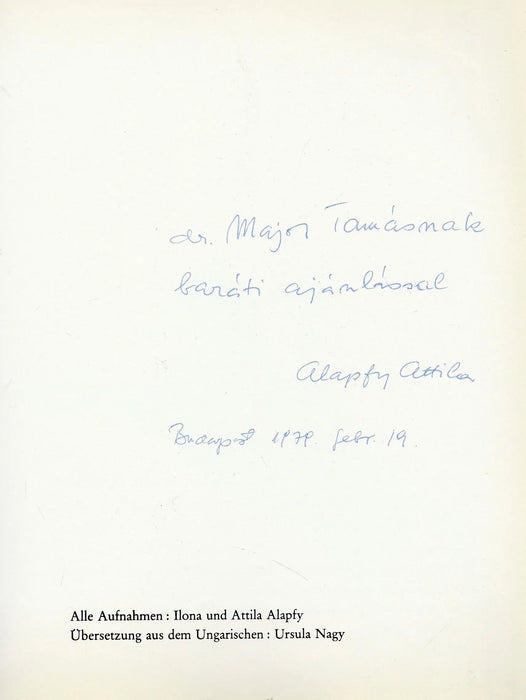 dr. Major Tamásnak
baráti ajánlással
Alapfy Attila
Budapest 1979. febr. 19.
Alle Aufnahmen : Ilona und Attila Alapfy
Übersetzung aus dem Ungarischen : Ursula Nagy